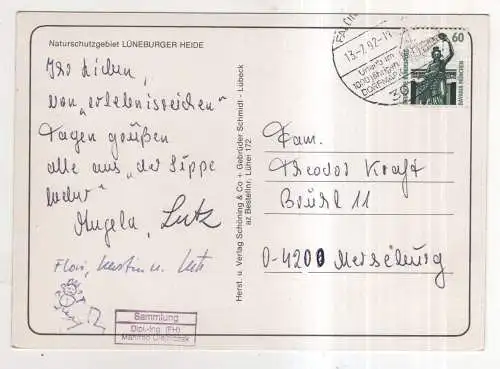 Naturschutzgebiet LÜNEBURGER HEIDE
Ihr Lieben,
von „erlebnisreichen"
Tagen grüßen
alle aus „der Sippe
Angela, Lutz
Flori, Kerstin u.
Sammlung
Dipl.-Ing. (FH)
Manfred
Herst. u. Verlag Schöning & Co + Gebrüder Schmidt - Lübeck
az Bestellnr. Lüner 172
13.-7.92-11
Urlaub im
1000 jährigen
60
BAVARIA MÜNCHEN
Fam.
Theodor Kraft
Brühl 11
O-4200 Merseburg